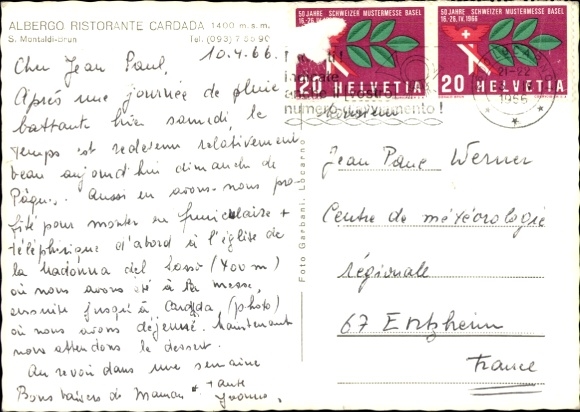 ALBERGO RISTORANTE CARDADA 1400 m.s.m.
S. Montaldi-Brun Tel. (093) 7 55 90
10.4.66.
Cher Jean Paul,
Après une journée de pluie
battante hier samedi, le
temps est redevenu relativement
beau aujourd'hui dimanche de
Pâques. Aussi en avons-nous pro-
fité pour monter en funiculaire +
téléphérique d'abord à l'église de
la Madonna del Sasso (400 m)
où nous avons été à la messe,
ensuite jusqu'à Cardada (photo)
où nous avons déjeuné. Maintenant
nous attendons le dessert.
Au revoir dans une semaine
Bons baisers de Maman + Tante
Yvonne.
Foto Garbani, Locarno
50 JAHRE SCHWEIZER MUSTERMESSE BASEL
16.-26. IV. 1966
20 HELVETIA
50 JAHRE SCHWEIZER MUSTERMESSE BASEL
16.-26. IV. 1966
20 HELVETIA
numero d'avviamento!
21-22
Monsieur
Jean Paul Werner
Centre de météorologie
régionale
67 Entzheim
France